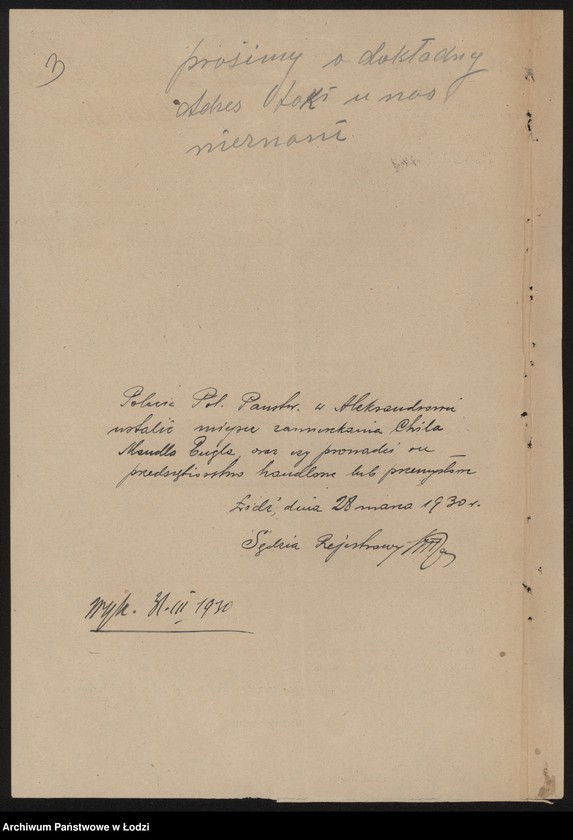 3
prosimy o dokładny
Adres taki u nas
nieznani.
Polecić Pol. Państw. w Aleksandrowie
ustalić miejsce zamieszkania Chila
Mendla Engla, oraz czy prowadzi on
przedsiębiorstwo handlowe lub przemysłowe
Łódź, dnia 28 marca 1930 r.
Sędzia Rejestrowy
Wyk. 31.III 1930
Archiwum Państwowe w Łodzi